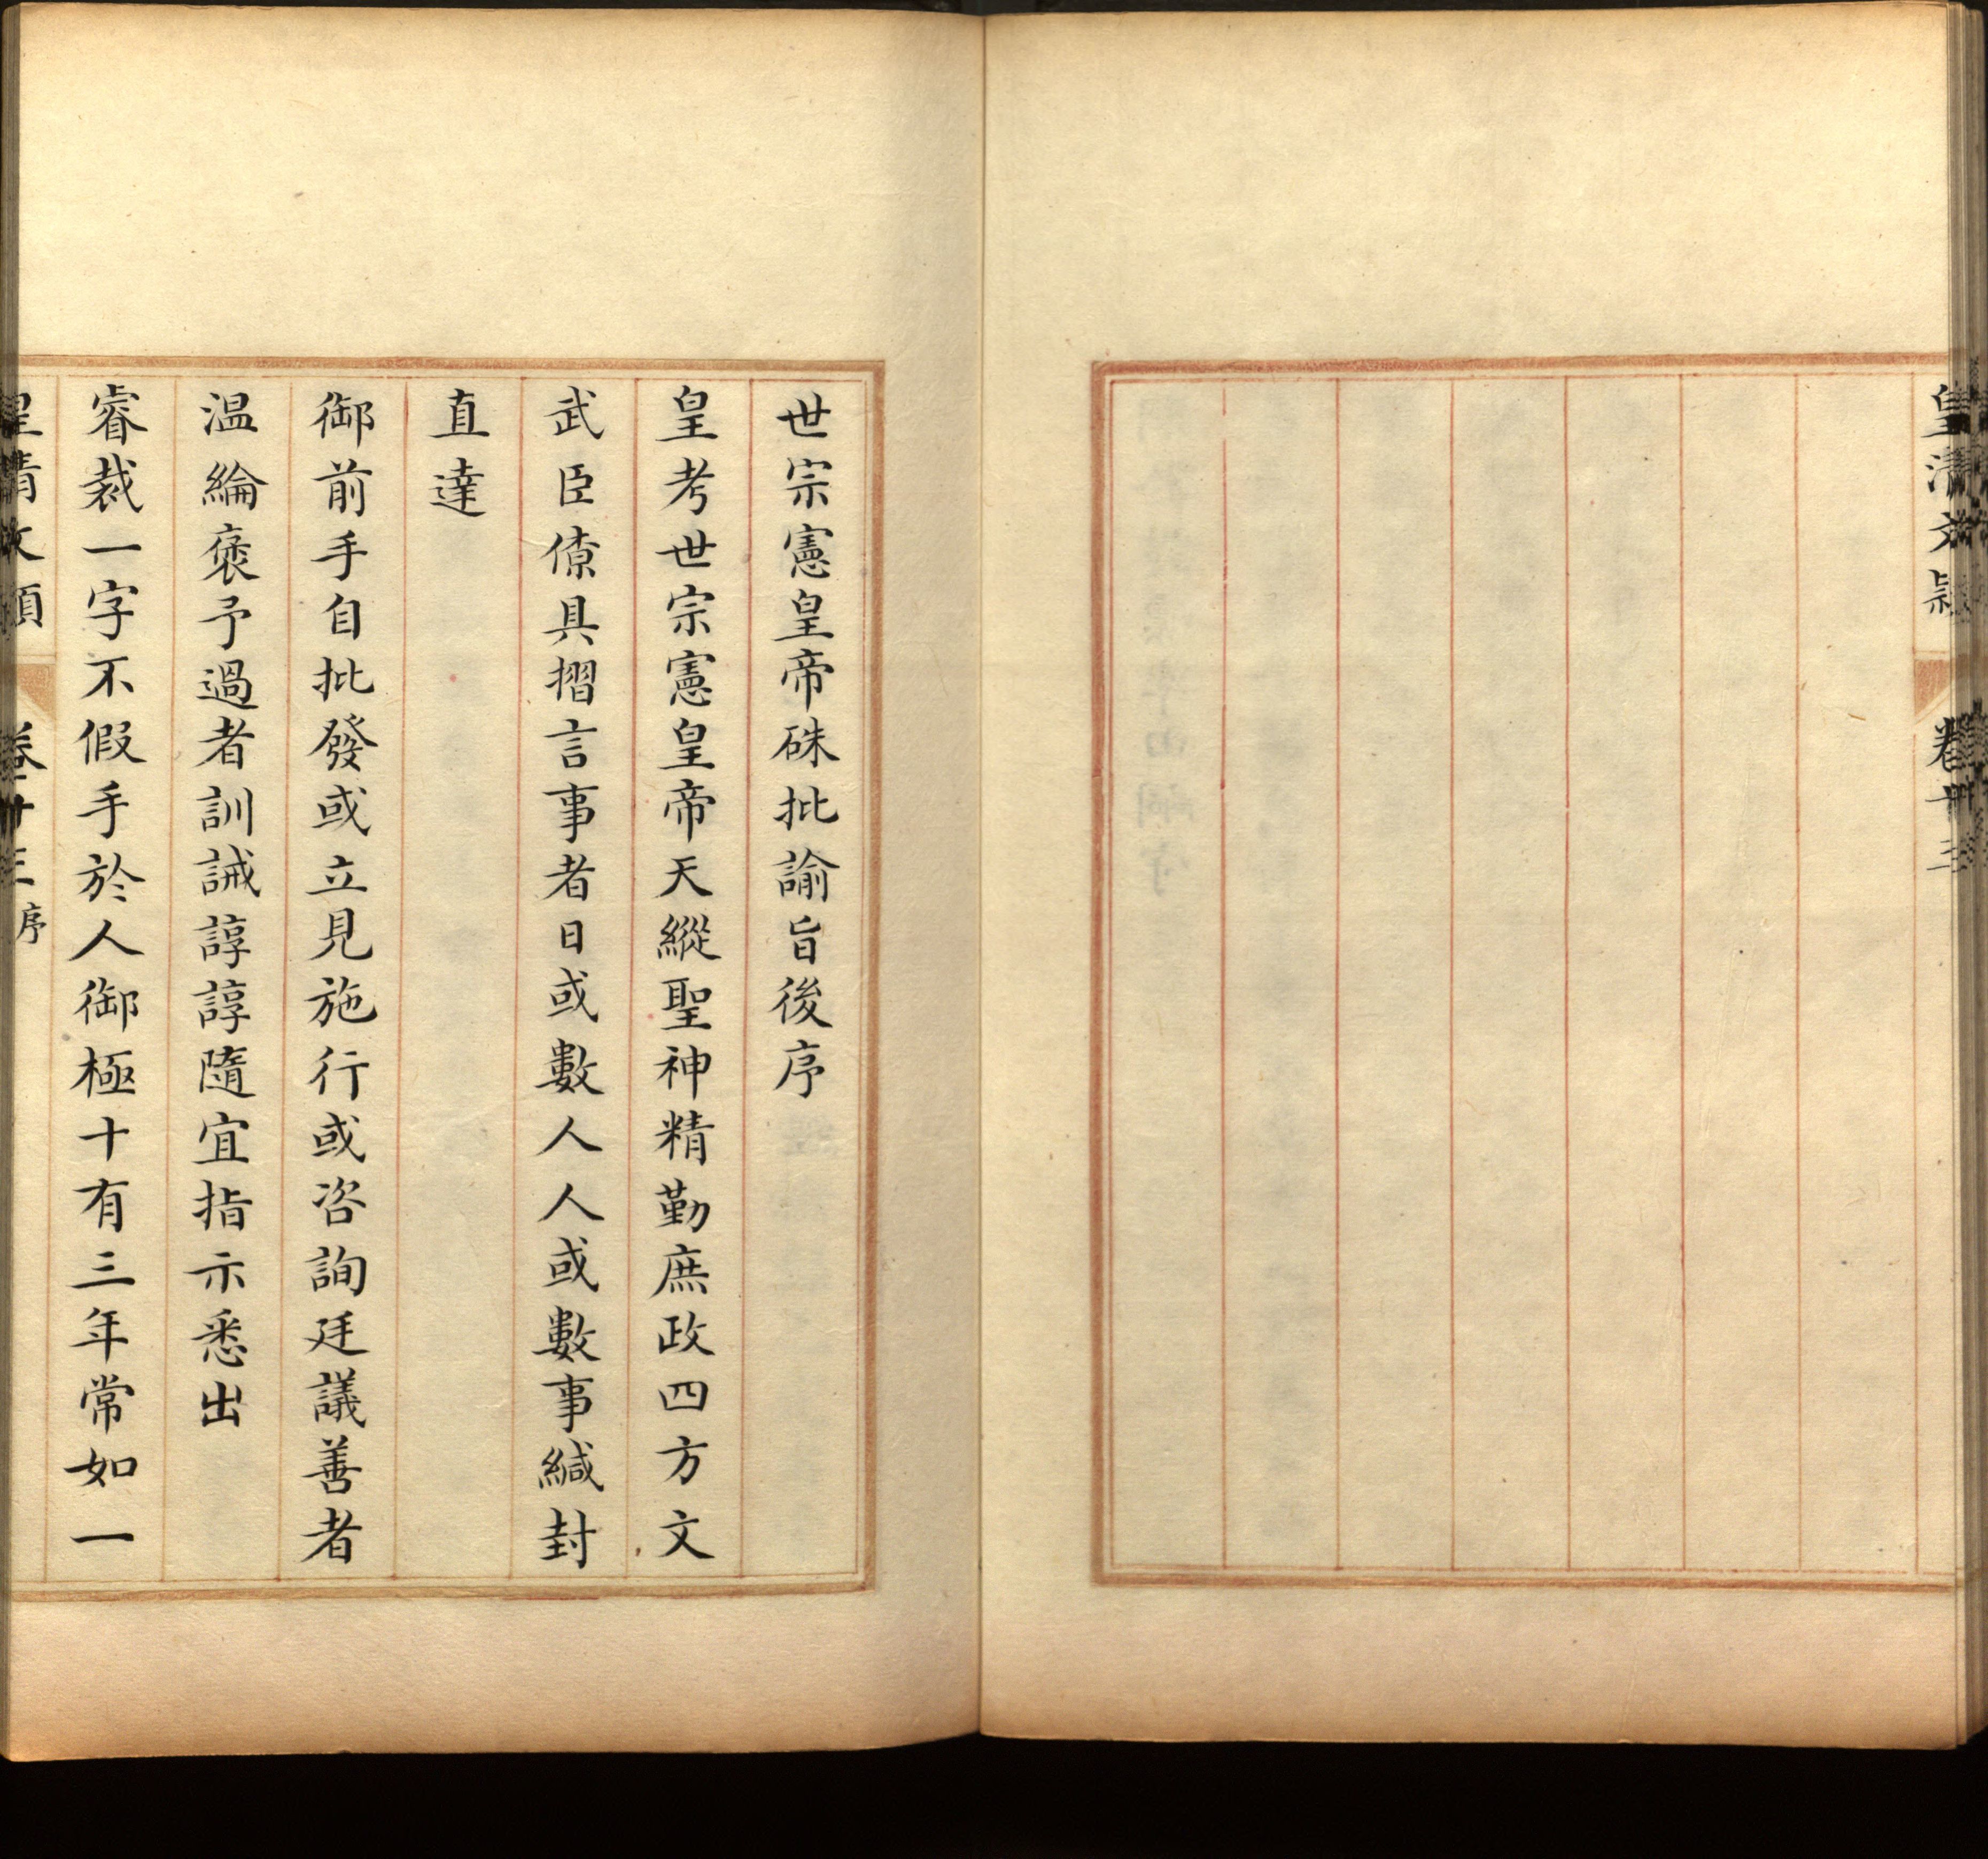 皇清文穎 卷十三
世宗憲皇帝硃批諭旨後序
皇考世宗憲皇帝天縱聖神精勤庶政四方文
武臣僚具摺言事者日或數人人或數事緘封
直達
御前手自批發或立見施行或咨詢廷議善者
溫綸褒予過者訓誡諄諄隨宜指示悉出
睿裁一字不假手於人御極十有三年常如一
皇清文穎 卷十三 序